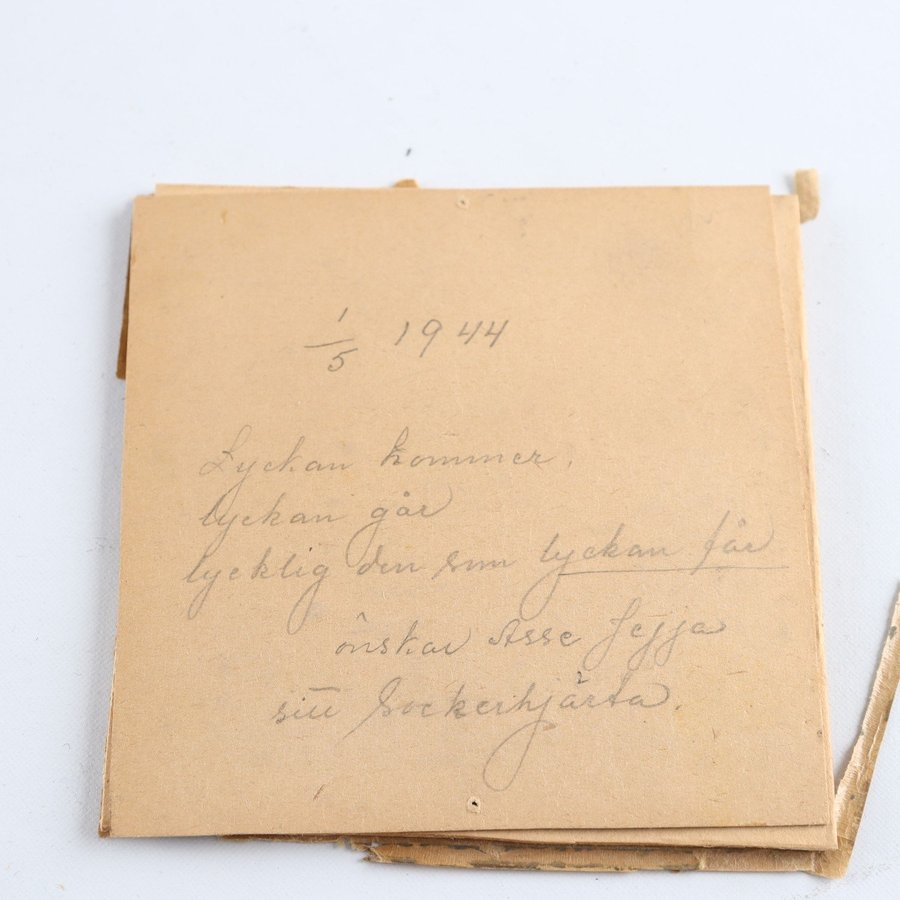 1/5 1944
Lyckan kommer,
lyckan går
lycklig den som lyckan får
önskar Asse Jejja
sitt Sockerhjärta.